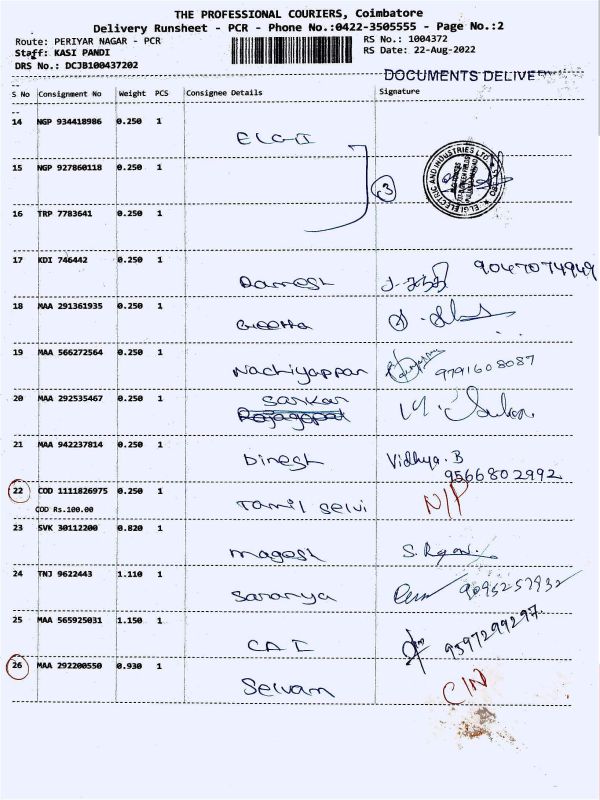 THE PROFESSIONAL COURIERS, Coimbatore
Delivery Runsheet - PCR - Phone No.:0422-3505555 - Page No.:2
Route: PERIYAR NAGAR - PCR
RS No.: 1004372
Staff: KASI PANDI
RS Date: 22-Aug-2022
DRS No.: DCJB100437202
DOCUMENTS DELIVE
S No Consignment No Weight PCS Consignee Details Signature
14 NGP 934418986 0.250 1 ELGI
15 NGP 927860118 0.250 1
3
16 TRP 7783641 0.250 1
17 KDI 746442 0.250 1 Ramesh 9047074949
18 MAA 291361935 0.250 1 Geetha
19 MAA 566272564 0.250 1 Nachiyappan 9791608087
20 MAA 292535467 0.250 1 Sankar
Rajagopal
21 MAA 942237814 0.250 1 Dinesh Vidhya.B
9566802992
22 COD 1111826975 0.250 1 Tamil Selvi N/P
COD Rs.100.00
23 SVK 30112200 0.820 1 Magesh
24 TNJ 9622443 1.110 1 Saranya
25 MAA 565925031 1.150 1 CAI 9597299297
26 MAA 292200550 0.930 1 Selvam C/N